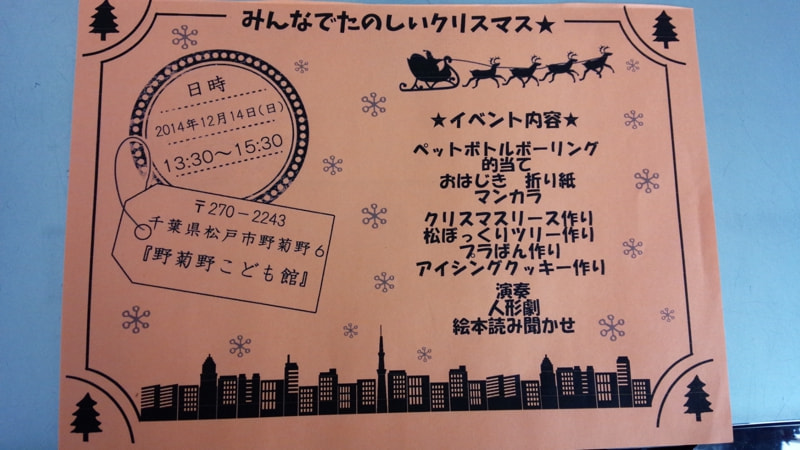 みんなでたのしいクリスマス★
日時
2014年12月14日(日)
13:30～15:30
〒270－2243
千葉県松戸市野菊野6
『野菊野こども館』
★イベント内容★
ペットボトルボーリング
的当て
おはじき　折り紙
マンカラ
クリスマスリース作り
松ぼっくりツリー作り
プラばん作り
アイシングクッキー作り
演奏
人形劇
絵本読み聞かせ